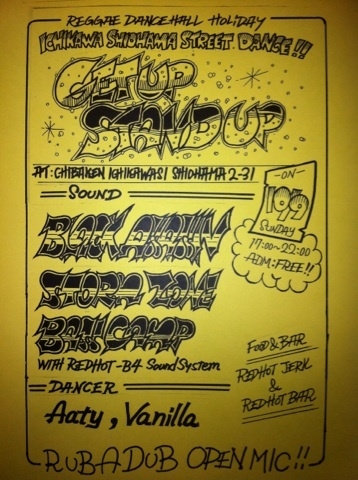 REGGAE DANCEHALL HOLiDAY
ICHIKAWA SHIOHAMA STREET DANCE!!
GET UP
STAND UP
AT: CHIBAKEN ICHIKAWASI SHIOHAMA 2-31
-ON-
10/9
SUNDAY
17:00~22:00
ADM:FREE!!
SOUND
BLACK
STORM ZONE
CAMP
WITH REDHOT-B4 Sound System
DANCER
Aaty, Vanilla
FOOD & BAR
REDHOT JERK
&
REDHOT BAR
RUB A DUB OPEN MIC!!